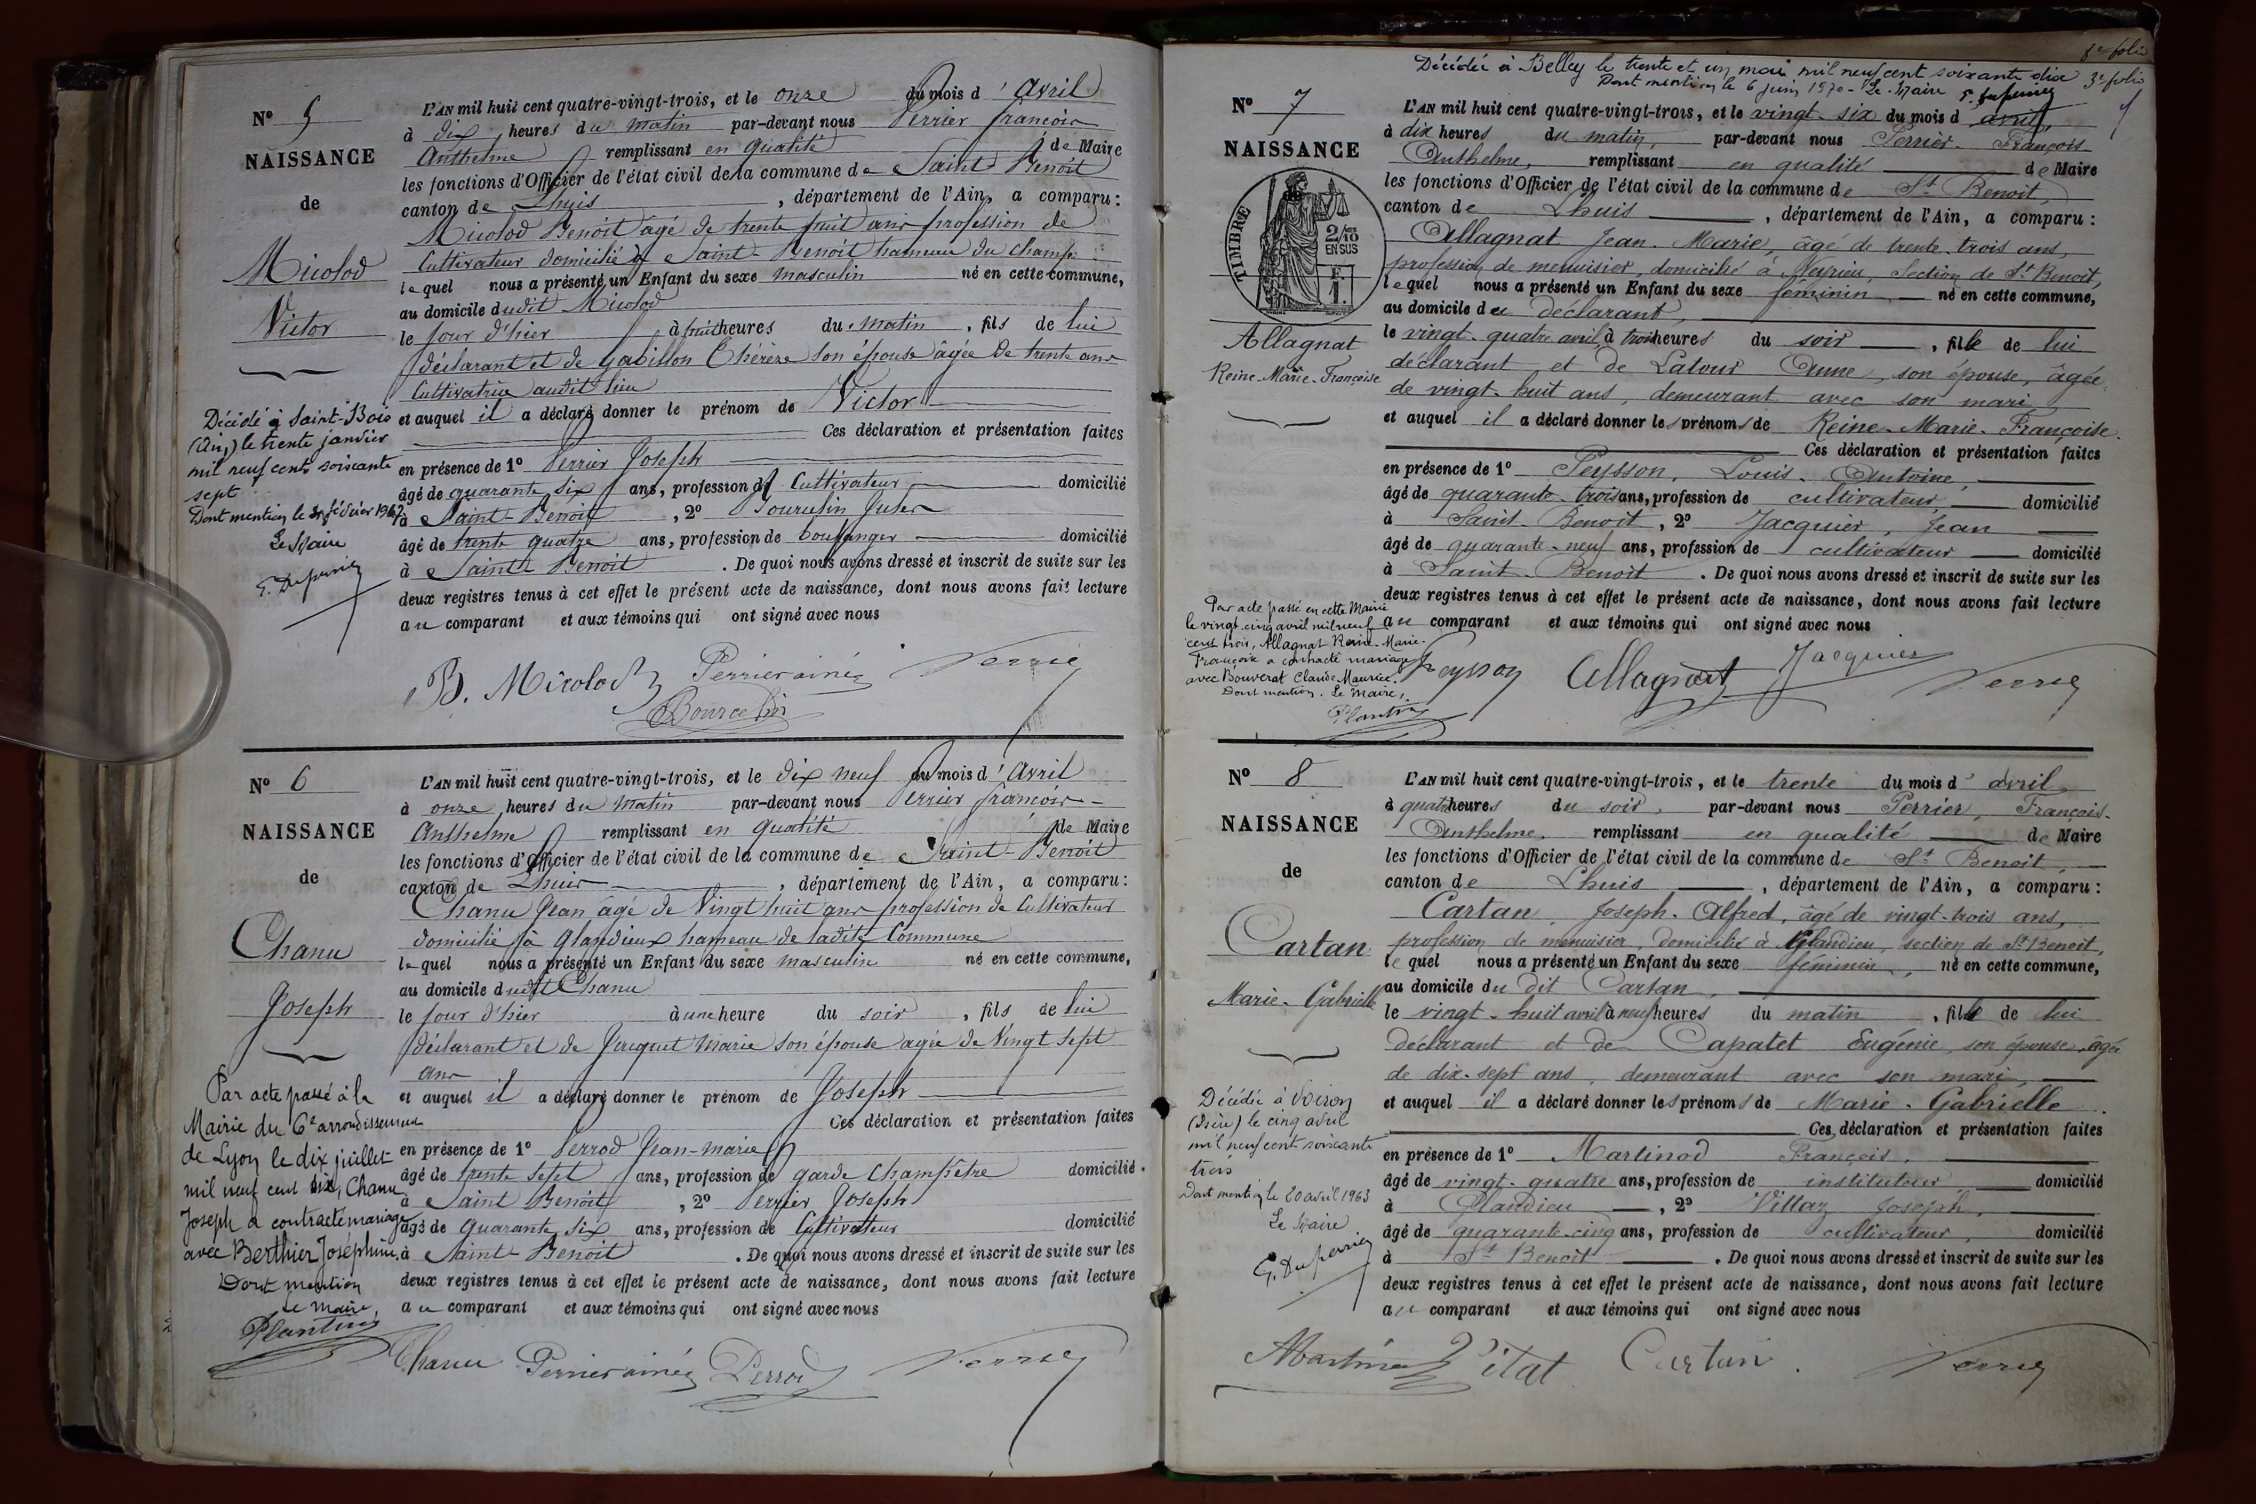 Nº 5
NAISSANCE
de
Micolod
Victor
Décédé à Saint-Bois
(Ain) le trente janvier
mil neuf cent soixante
sept
Dont mention le février 1967
Le Maire
G. Duperrier
L'AN mil huit cent quatre-vingt-trois, et le onze du mois d'Avril
à dix heures du matin par-devant nous Perrier françois
Anthelme remplissant en qualité de Maire
les fonctions d'Officier de l'état civil de la commune de Saint Benoit
canton de Lhuis, département de l'Ain, a comparu :
Micolod Benoit âgé de trente huit ans profession de
Cultivateur domicilié à Saint-Benoit hameau du champ
lequel nous a présenté un Enfant du sexe masculin né en cette commune,
au domicile dudit Micolod
le jour d'hier à huit heures du matin, fils de lui
déclarant et de Gabillon Thérèse son épouse âgée de trente ans
Cultivatrice audit lieu
et auquel il a déclaré donner le prénom de Victor
Ces déclaration et présentation faites
en présence de 1º Perrier Joseph
âgé de quarante six ans, profession de Cultivateur domicilié
à Saint-Benoit, 2º Bourcelin
âgé de trente quatre ans, profession de boulanger domicilié
à Saint Benoit. De quoi nous avons dressé et inscrit de suite sur les
deux registres tenus à cet effet le présent acte de naissance, dont nous avons fait lecture
au comparant et aux témoins qui ont signé avec nous
B. Micolod Perrier ainé Perrier
Bourcelin
Nº 6
NAISSANCE
de
Chanu
Joseph
Par acte passé à la
Mairie du 6e arrondissement
de Lyon le dix juillet
mil neuf cent six, Chanu
Joseph a contracté mariage
avec Berthier Joséphine
Dont mention
Le Maire,
Plantin
L'AN mil huit cent quatre-vingt-trois, et le dix neuf du mois d'Avril
à onze heures du matin par-devant nous Perrier françois
Anthelme remplissant en qualité de Maire
les fonctions d'Officier de l'état civil de la commune de Saint-Benoit
canton de Lhuis, département de l'Ain, a comparu :
Chanu Jean âgé de Vingt huit ans profession de Cultivateur
domicilié à Glandieux hameau de ladite Commune
lequel nous a présenté un Enfant du sexe masculin né en cette commune,
au domicile dudit Chanu
le jour d'hier à une heure du soir, fils de lui
déclarant et de Jacquet Marie son épouse agée de Vingt sept
ans
et auquel il a déclaré donner le prénom de Joseph
Ces déclaration et présentation faites
en présence de 1º Perrod Jean-marie
âgé de trente sept ans, profession de garde Champêtre domicilié
à Saint Benoit, 2º Perrier Joseph
âgé de quarante six ans, profession de Cultivateur domicilié
à Saint-Benoit. De quoi nous avons dressé et inscrit de suite sur les
deux registres tenus à cet effet le présent acte de naissance, dont nous avons fait lecture
au comparant et aux témoins qui ont signé avec nous
Chanu Perrier ainé Perrod Perrier
3e folio
Décédée à Belley le trente et un mai mil neuf cent soixante dix
Dont mention le 6 juin 1970 - Le Maire G. Duperrier
Nº 7
NAISSANCE
TIMBRE
2/10
EN SUS
Allagnat
Reine-Marie-Françoise
Par acte passé en cette Mairie
le vingt-cinq avril mil neuf
cent trois, Allagnat Reine-Marie-
Françoise a contracté mariage
avec Bouverat Claude Maurice.
Dont mention. Le Maire,
Plantin
L'AN mil huit cent quatre-vingt-trois, et le vingt-six du mois d'avril,
à dix heures du matin, par-devant nous Perrier-François
Anthelme, remplissant en qualité de Maire
les fonctions d'Officier de l'état civil de la commune de St Benoit,
canton de Lhuis, département de l'Ain, a comparu :
Allagnat Jean-Marie, âgé de trente-trois ans,
profession de menuisier, domicilié à Nérieu, Section de St Benoit,
lequel nous a présenté un Enfant du sexe féminin né en cette commune,
au domicile du déclarant,
le vingt-quatre avril à trois heures du soir, fille de lui
déclarant et de Latour Anne, son épouse, âgée
de vingt-huit ans, demeurant avec son mari
et auquel il a déclaré donner les prénoms de Reine-Marie-Françoise.
Ces déclaration et présentation faites
en présence de 1º Peysson, Louis-Antoine,
âgé de quarante-trois ans, profession de cultivateur, domicilié
à Saint-Benoit, 2º Jacquier, Jean
âgé de quarante-neuf ans, profession de cultivateur domicilié
à Saint-Benoit. De quoi nous avons dressé et inscrit de suite sur les
deux registres tenus à cet effet le présent acte de naissance, dont nous avons fait lecture
au comparant et aux témoins qui ont signé avec nous
Peysson Allagnat Jacquier Perrier
Nº 8
NAISSANCE
de
Cartan
Marie-Gabrielle
Décédée à Voiron
(Isère) le cinq avril
mil neuf cent soixante
trois
Dont mention le 20 avril 1963
Le Maire
G. Duperrier
L'AN mil huit cent quatre-vingt-trois, et le trente du mois d'avril
à quatre heures du soir, par-devant nous Perrier, François-
Anthelme, remplissant en qualité de Maire
les fonctions d'Officier de l'état civil de la commune de St Benoit,
canton de Lhuis, département de l'Ain, a comparu :
Cartan, Joseph-Alfred, âgé de vingt-trois ans,
profession de menuisier, domicilié à Glandieu, section de St Benoit,
lequel nous a présenté un Enfant du sexe féminin, né en cette commune,
au domicile du dit Cartan,
le vingt-huit avril à neuf heures du matin, fille de lui
déclarant et de Capatet Eugénie, son épouse, âgée
de dix-sept ans, demeurant avec son mari,
et auquel il a déclaré donner les prénoms de Marie-Gabrielle.
Ces déclaration et présentation faites
en présence de 1º Martinod François,
âgé de vingt-quatre ans, profession de instituteur domicilié
à Glandieu, 2º Villaz Joseph,
âgé de quarante-cinq ans, profession de cultivateur, domicilié
à St Benoit. De quoi nous avons dressé et inscrit de suite sur les
deux registres tenus à cet effet le présent acte de naissance, dont nous avons fait lecture
au comparant et aux témoins qui ont signé avec nous
Martinod Cartan. Perrier